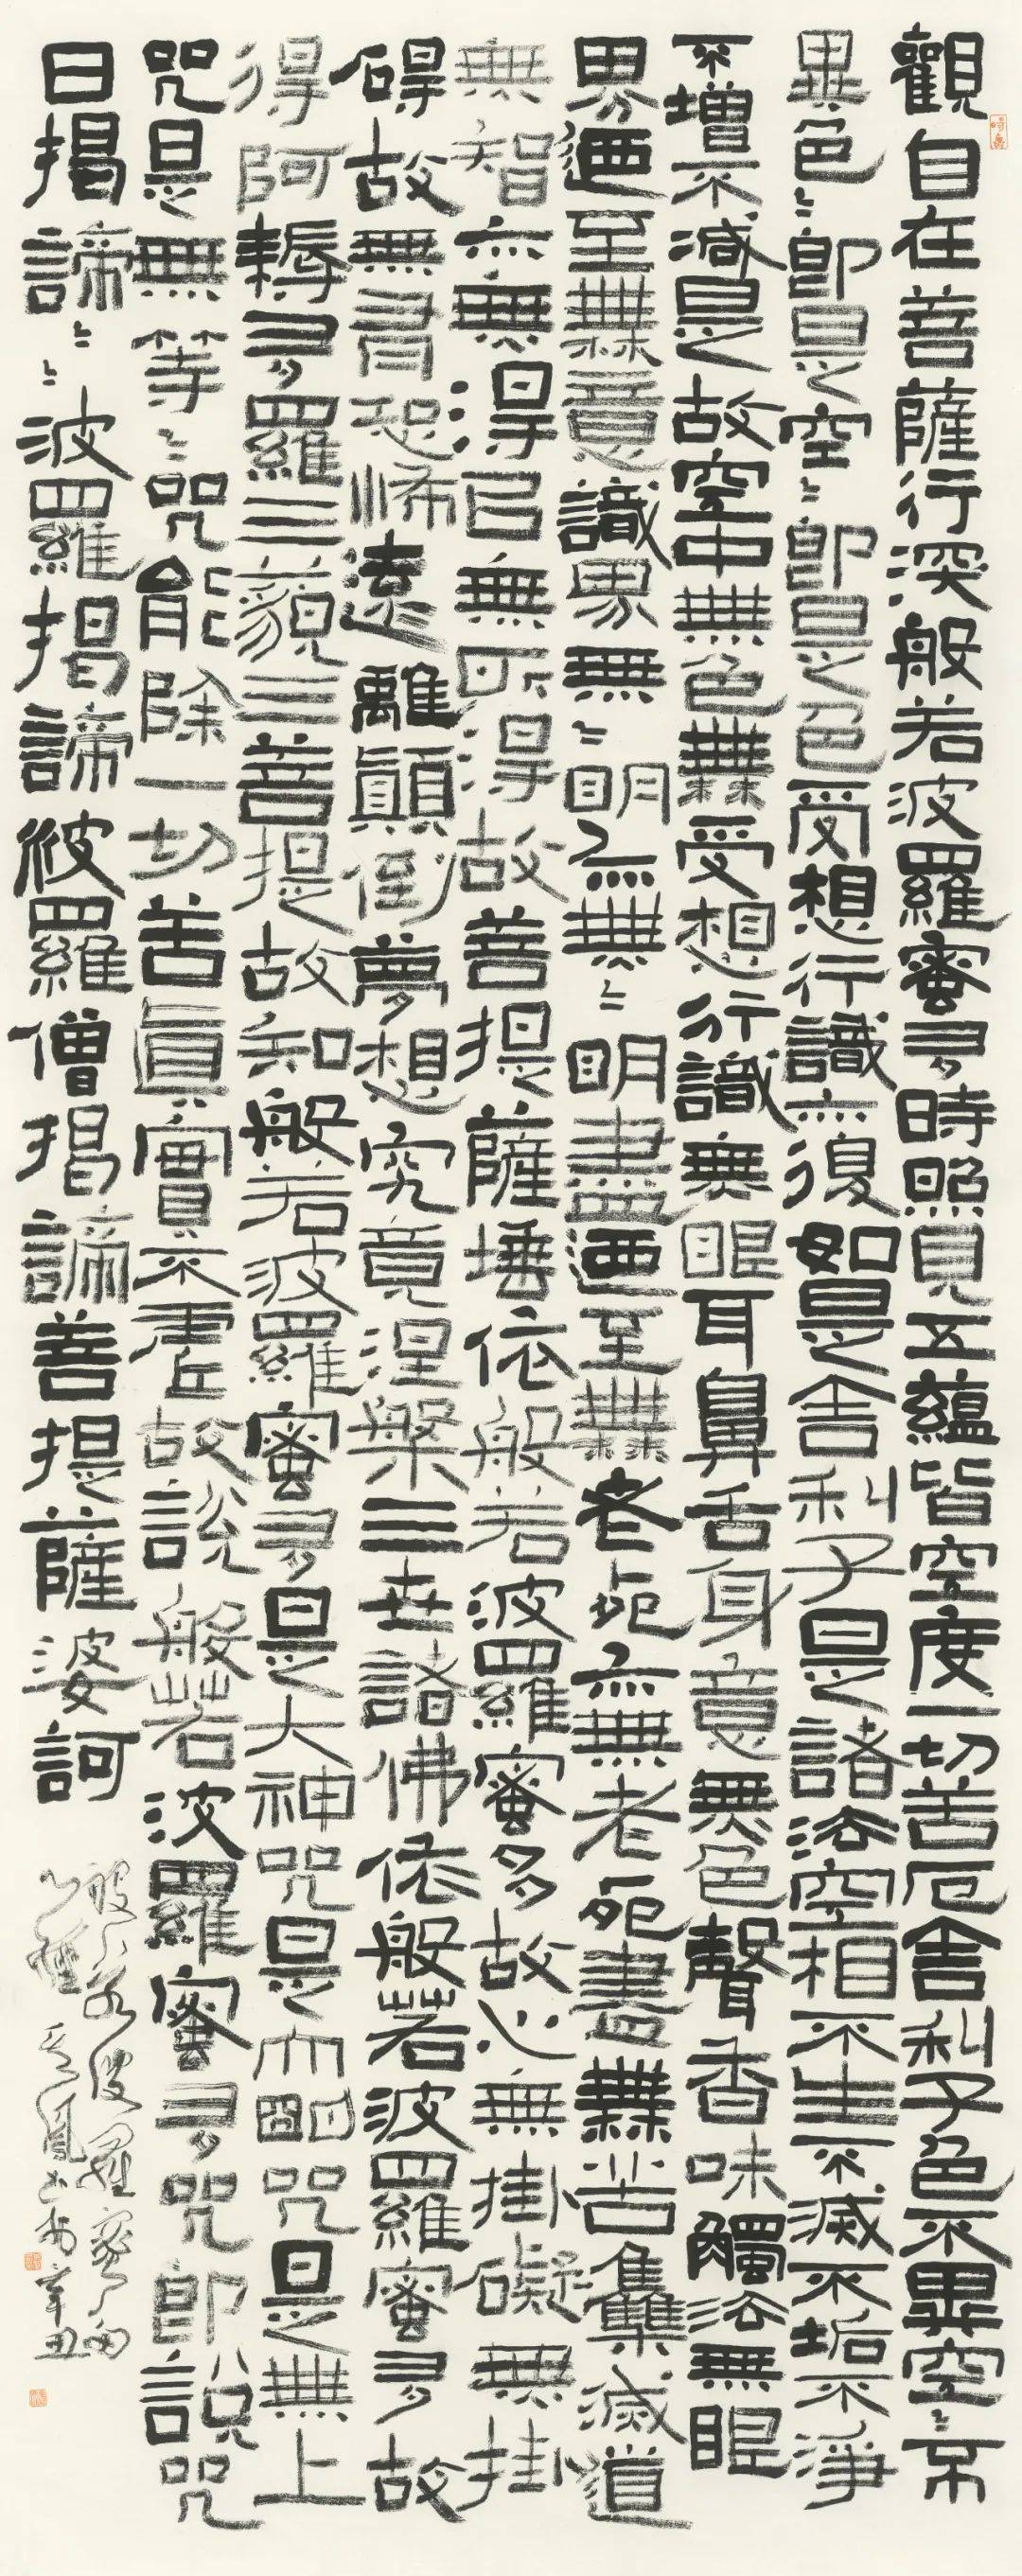 觀自在菩薩行深般若波羅蜜多時照見五蘊皆空度一切苦厄舍利子色不異空〻不
異色〻即是空〻即是色受想行識亦復如是舍利子是諸法空相不生不滅不垢不淨
不增不減是故空中無色無受想行識無眼耳鼻舌身意無色聲香味觸法無眼
界迺至無意識界無〻明亦無〻明盡迺至無老死亦無老死盡無苦集滅道
無智亦無得以無所得故菩提薩埵依般若波羅蜜多故心無掛礙無掛
碍故無有恐怖遠離顛倒夢想究竟涅槃三世諸佛依般若波羅蜜多故
得阿耨多羅三藐三菩提故知般若波羅蜜多是大神咒是大明咒是無上
咒是無等〻咒能除一切苦真實不虛故說般若波羅蜜多咒即說咒
曰揭諦〻〻波羅揭諦波羅僧揭諦菩提薩婆訶
般若波羅蜜多
心經 辛丑